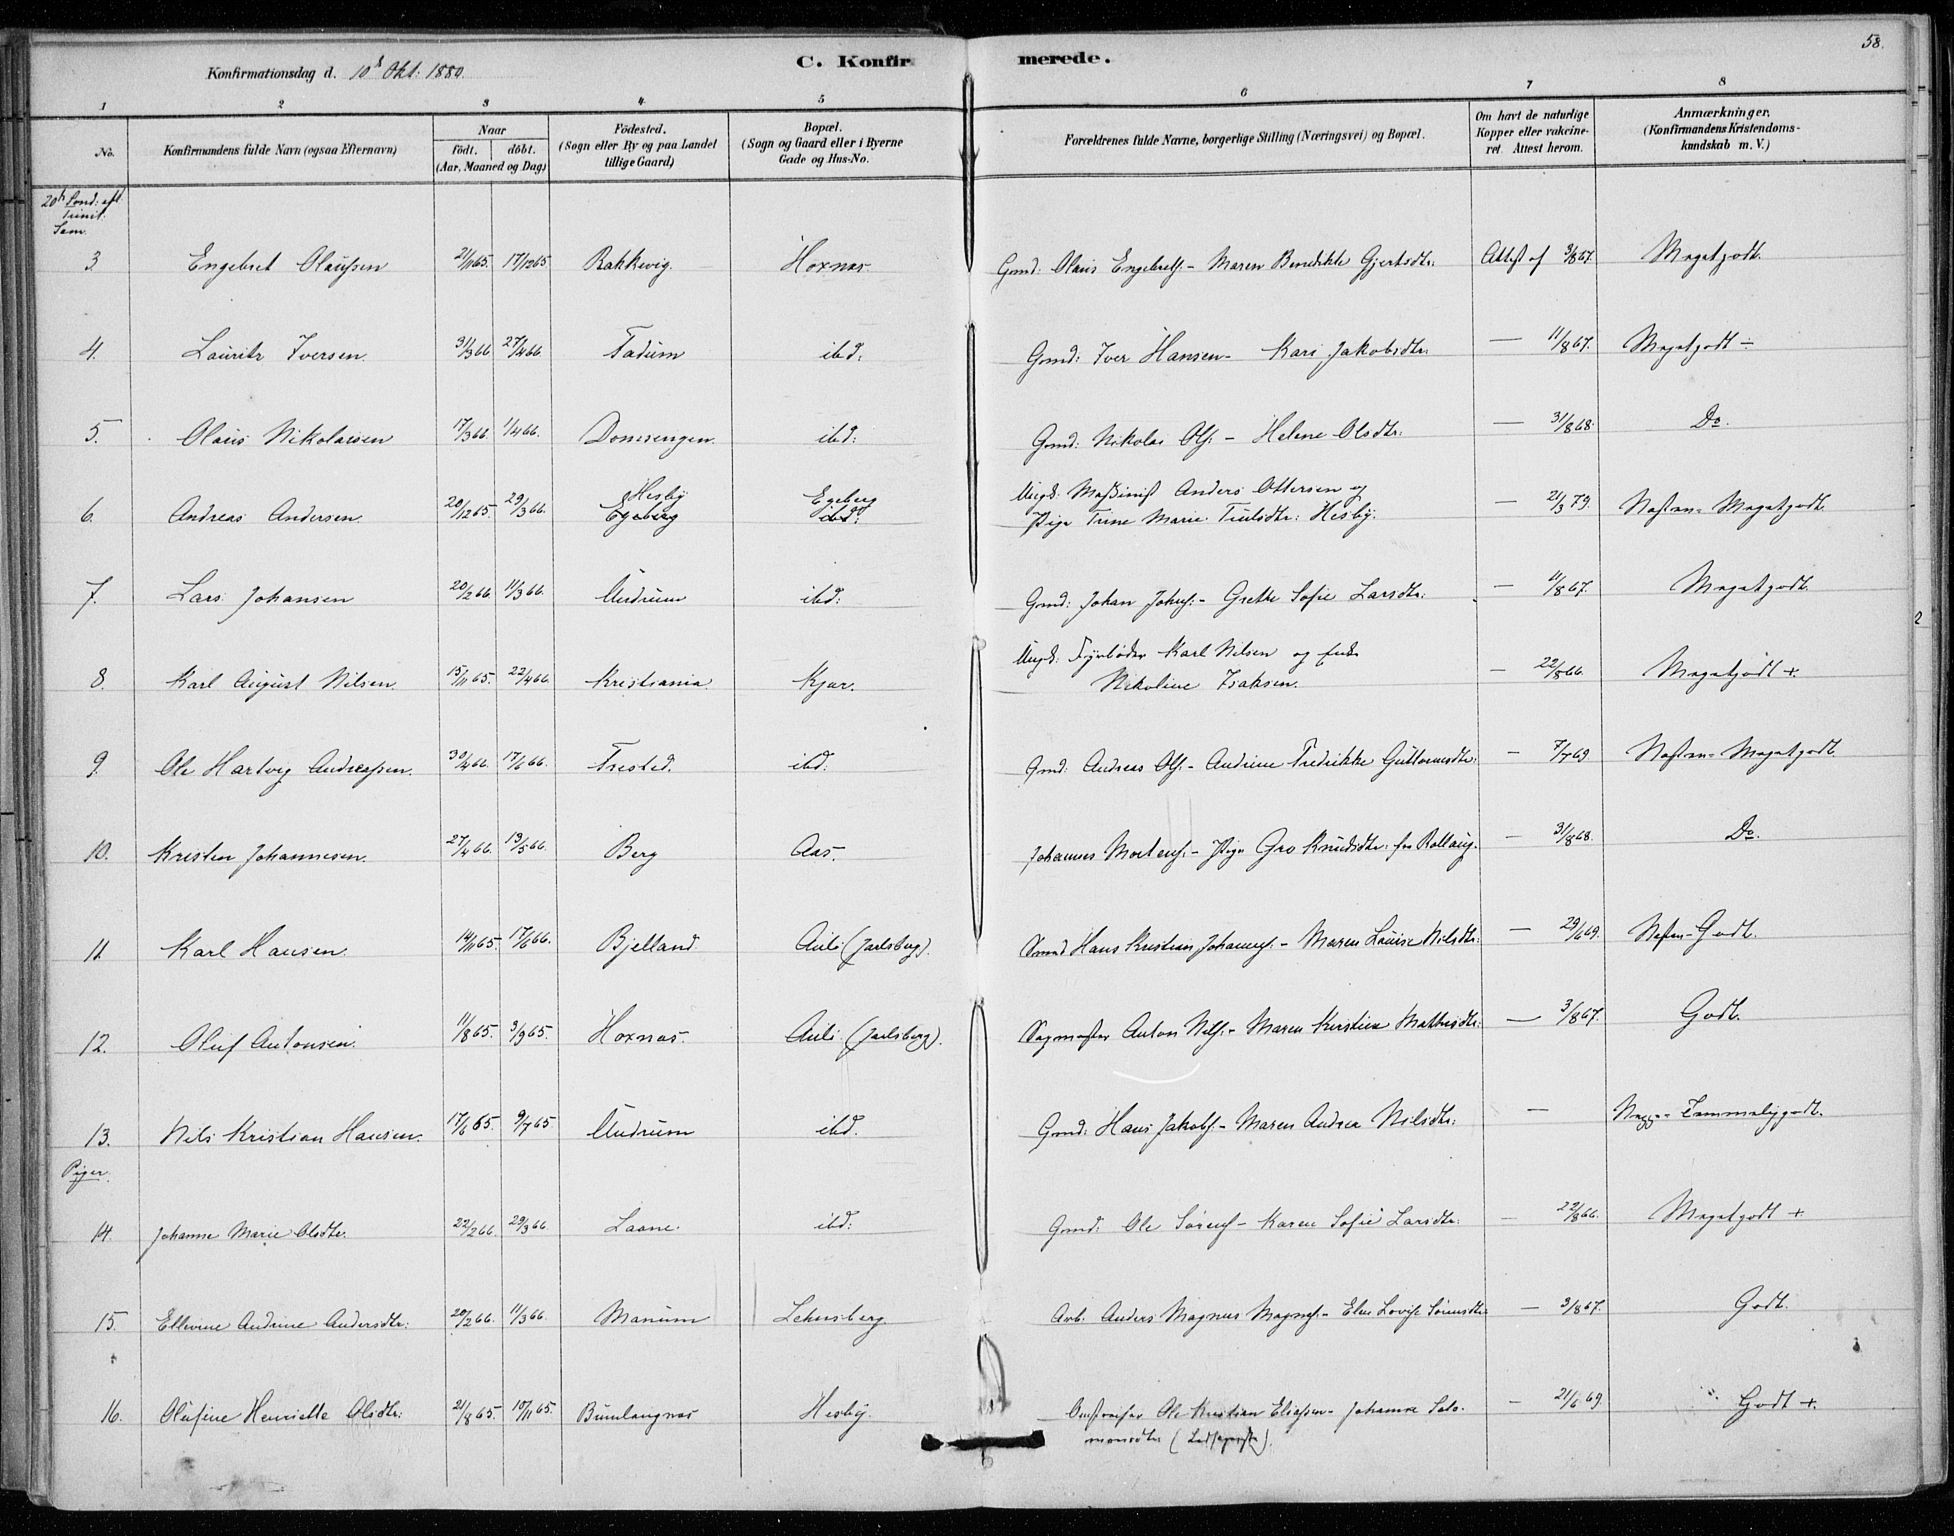 58.
C. Konfirmerede.
Konfirmationsdag d. 10d Okt. 1880.
1 2 3 4 5 6 7 8
No. Konfirmandens fulde Navn (ogsaa Efternavn) Naar födt. döbt. (Aar, Maaned og Dag) Födested. (Sogn eller By og paa Landet tillige Gaard) Bopæl. (Sogn og Gaard eller i Byerne Gade og Hus-No. Forældrenes fulde Navne, borgerlige Stilling (Næringsvei) og Bopæl. Om havt de naturlige Kopper eller vakcineret. Attest herom. Anmærkninger. (Konfirmandens Kristendomskundskab m. V.)
20d Sønd: eft. Trinit.
Sem.
3. Engebret Olaussen 2/11 65. 17/12 65 Bakkevig. Hoxnas. Gmd: Olaus Engebrets. - Maren Benedikte Gjertsdtr: Attest af 3/8 67. Megetgodt.
4. Lauritz Iversen. 31/3 66 27/4 66. Fadum ibd: Gmd: Iver Hansen - Kari Jakobsdtr: — 11/8 67. Megetgodt ÷
5. Olaus Nikolaisen 17/3 66. 1/4 66. Domsengen. ibd: Gmd: Nikolai Ols. - Helene Olsdtr: — 31/8 68. Do.
6. Andreas Andersen. 20/12 65. 29/3 66. Hesby Egeberg Egeberg ibd: Ungk: Maskinist Anders Ottersen og
Pige Trine Marie Trulsdtr: Hesby. — 21/3 79. Næsten - Megetgodt.
7. Lars Johansen 20/2 66 11/3 66. Undrum ibd: Gmd: Johan Johns. - Grethe Sofie Larsdtr: — 11/8 67. Megetgodt.
8. Karl August Nilsen. 15/11 65. 22/4 66. Kristiania. Kjær. Ungk: Fyrbøder Karl Nilsen og Enke
Nikoline Isaksen. — 22/8 66. Megetgodt +.
9. Ole Hartvig Andreassen. 30/4 66. 17/6 66. Frested. ibd: Gmd: Andreas Ols. - Andrine Fredrikke Guttormsdtr: — 7/7 69 Næsten - Megetgodt.
10. Kristen Johannesen. 27/4 66. 13/5 66. Berg Aas. Johannes Mortens. - Pige Gro Knudsdtr: fra Rollaug. — 31/8 68. Do.
11. Karl Hansen. 14/11 65. 17/6 66. Bjelland Auli (Jarlsberg). Gmd Hans Kristian Johannes. - Maren Louise Nilsdtr: — 29/6 69. Næsten - Godt.
12. Oluf Antonsen. 11/8 65. 3/9 65. Hoxnas. Auli. (Jarlsberg). Sagmester Anton Nils. - Maren Kirstine Mathisdtr: — 3/8 67. Godt.
13. Nils Kristian Hansen. 17/6 65. 9/7 65 Undrum ibd. Gmd: Hans Jakobs. - Maren Andrea Nilsdtr: — Temmeliggodt.
Piger.
14. Johanne Marie Olsdtr. 22/2 66. 29/3 66 Laane. ibd: Gmd: Ole Sørens. - Karen Sofie Larsdtr: — 22/8 66. Megetgodt +
15. Ellevine Andrine Andersdtr: 20/2 66. 11/3 66. Manum Lensberg Arb. Anders Magnus Magnus. - Elen Lovise Sörensdtr — 3/8 67. Godt.
16. Olufine Henriette Olsdtr: 21/8 65. 10/11 65. Bumlangnas Hesby. Ole Kristian Eliassen - Johanne Salo-
monsdtr — 21/6 69 Godt +.